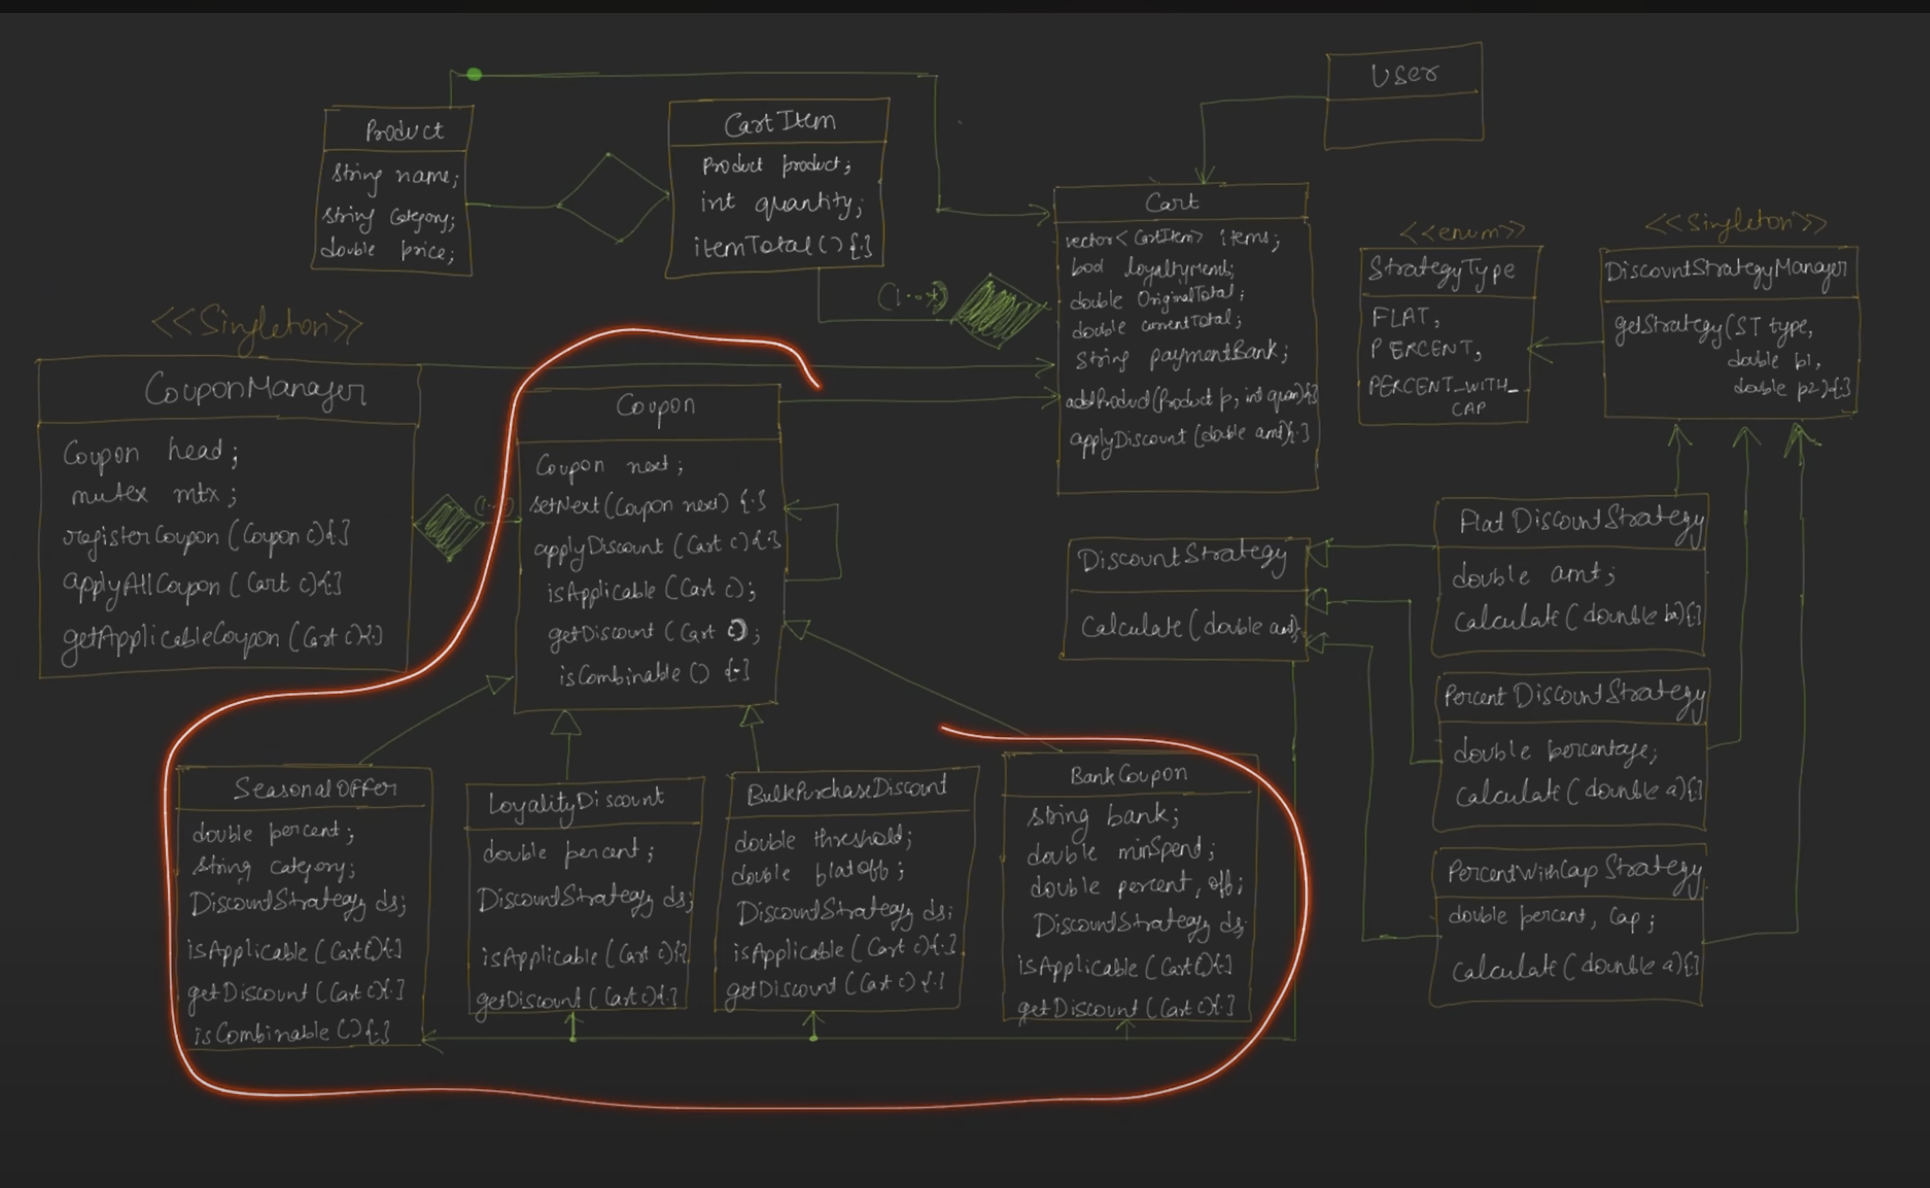 User
Product
string name;
string category;
double price;
CartItem
Product product;
int quantity;
itemTotal() {.}
Cart
vector<CartItem> items;
bool loyaltyMemb;
double OriginalTotal;
double currentTotal;
string paymentBank;
addProduct(Product p, int quan){}
applyDiscount (double amt){.}
(1..*)
<<enum>>
StrategyType
FLAT,
PERCENT,
PERCENT_WITH_
CAP
<<Singleton>>
DiscountStrategyManager
getStrategy(ST type,
double p1,
double p2){.}
<<Singleton>>
CouponManager
Coupon head;
mutex mtx;
registerCoupon (Coupon c){.}
applyAllCoupon (Cart c){.}
getApplicableCoupon (Cart c){.}
Coupon
Coupon next;
setNext(Coupon next) {.}
applyDiscount (Cart c){.}
isApplicable (Cart c);
getDiscount (Cart c);
isCombinable () {.}
DiscountStrategy
Calculate (double amt);
Flat DiscountStrategy
double amt;
Calculate (dounble ba){.}
Percent DiscountStrategy
double percentage;
Calculate (dounble a){.}
PercentWithCap Strategy
double percent, cap;
Calculate (dounble a){.}
SeasonalOffer
double percent;
string category;
DiscountStrategy ds;
isApplicable (Cart c){.}
getDiscount (Cart c){.}
isCombinable () {.}
LoyalityDiscount
double percent;
DiscountStrategy ds;
isApplicable (Cart c){.}
getDiscount (Cart c){.}
BulkPurchaseDiscount
double threshold;
double flatoff;
DiscountStrategy ds;
isApplicable (Cart c){.}
getDiscount (Cart c) {.}
BankCoupon
string bank;
double minSpend;
double percent, off;
DiscountStrategy ds;
isApplicable (Cart c){.}
getDiscount (Cart c){.}